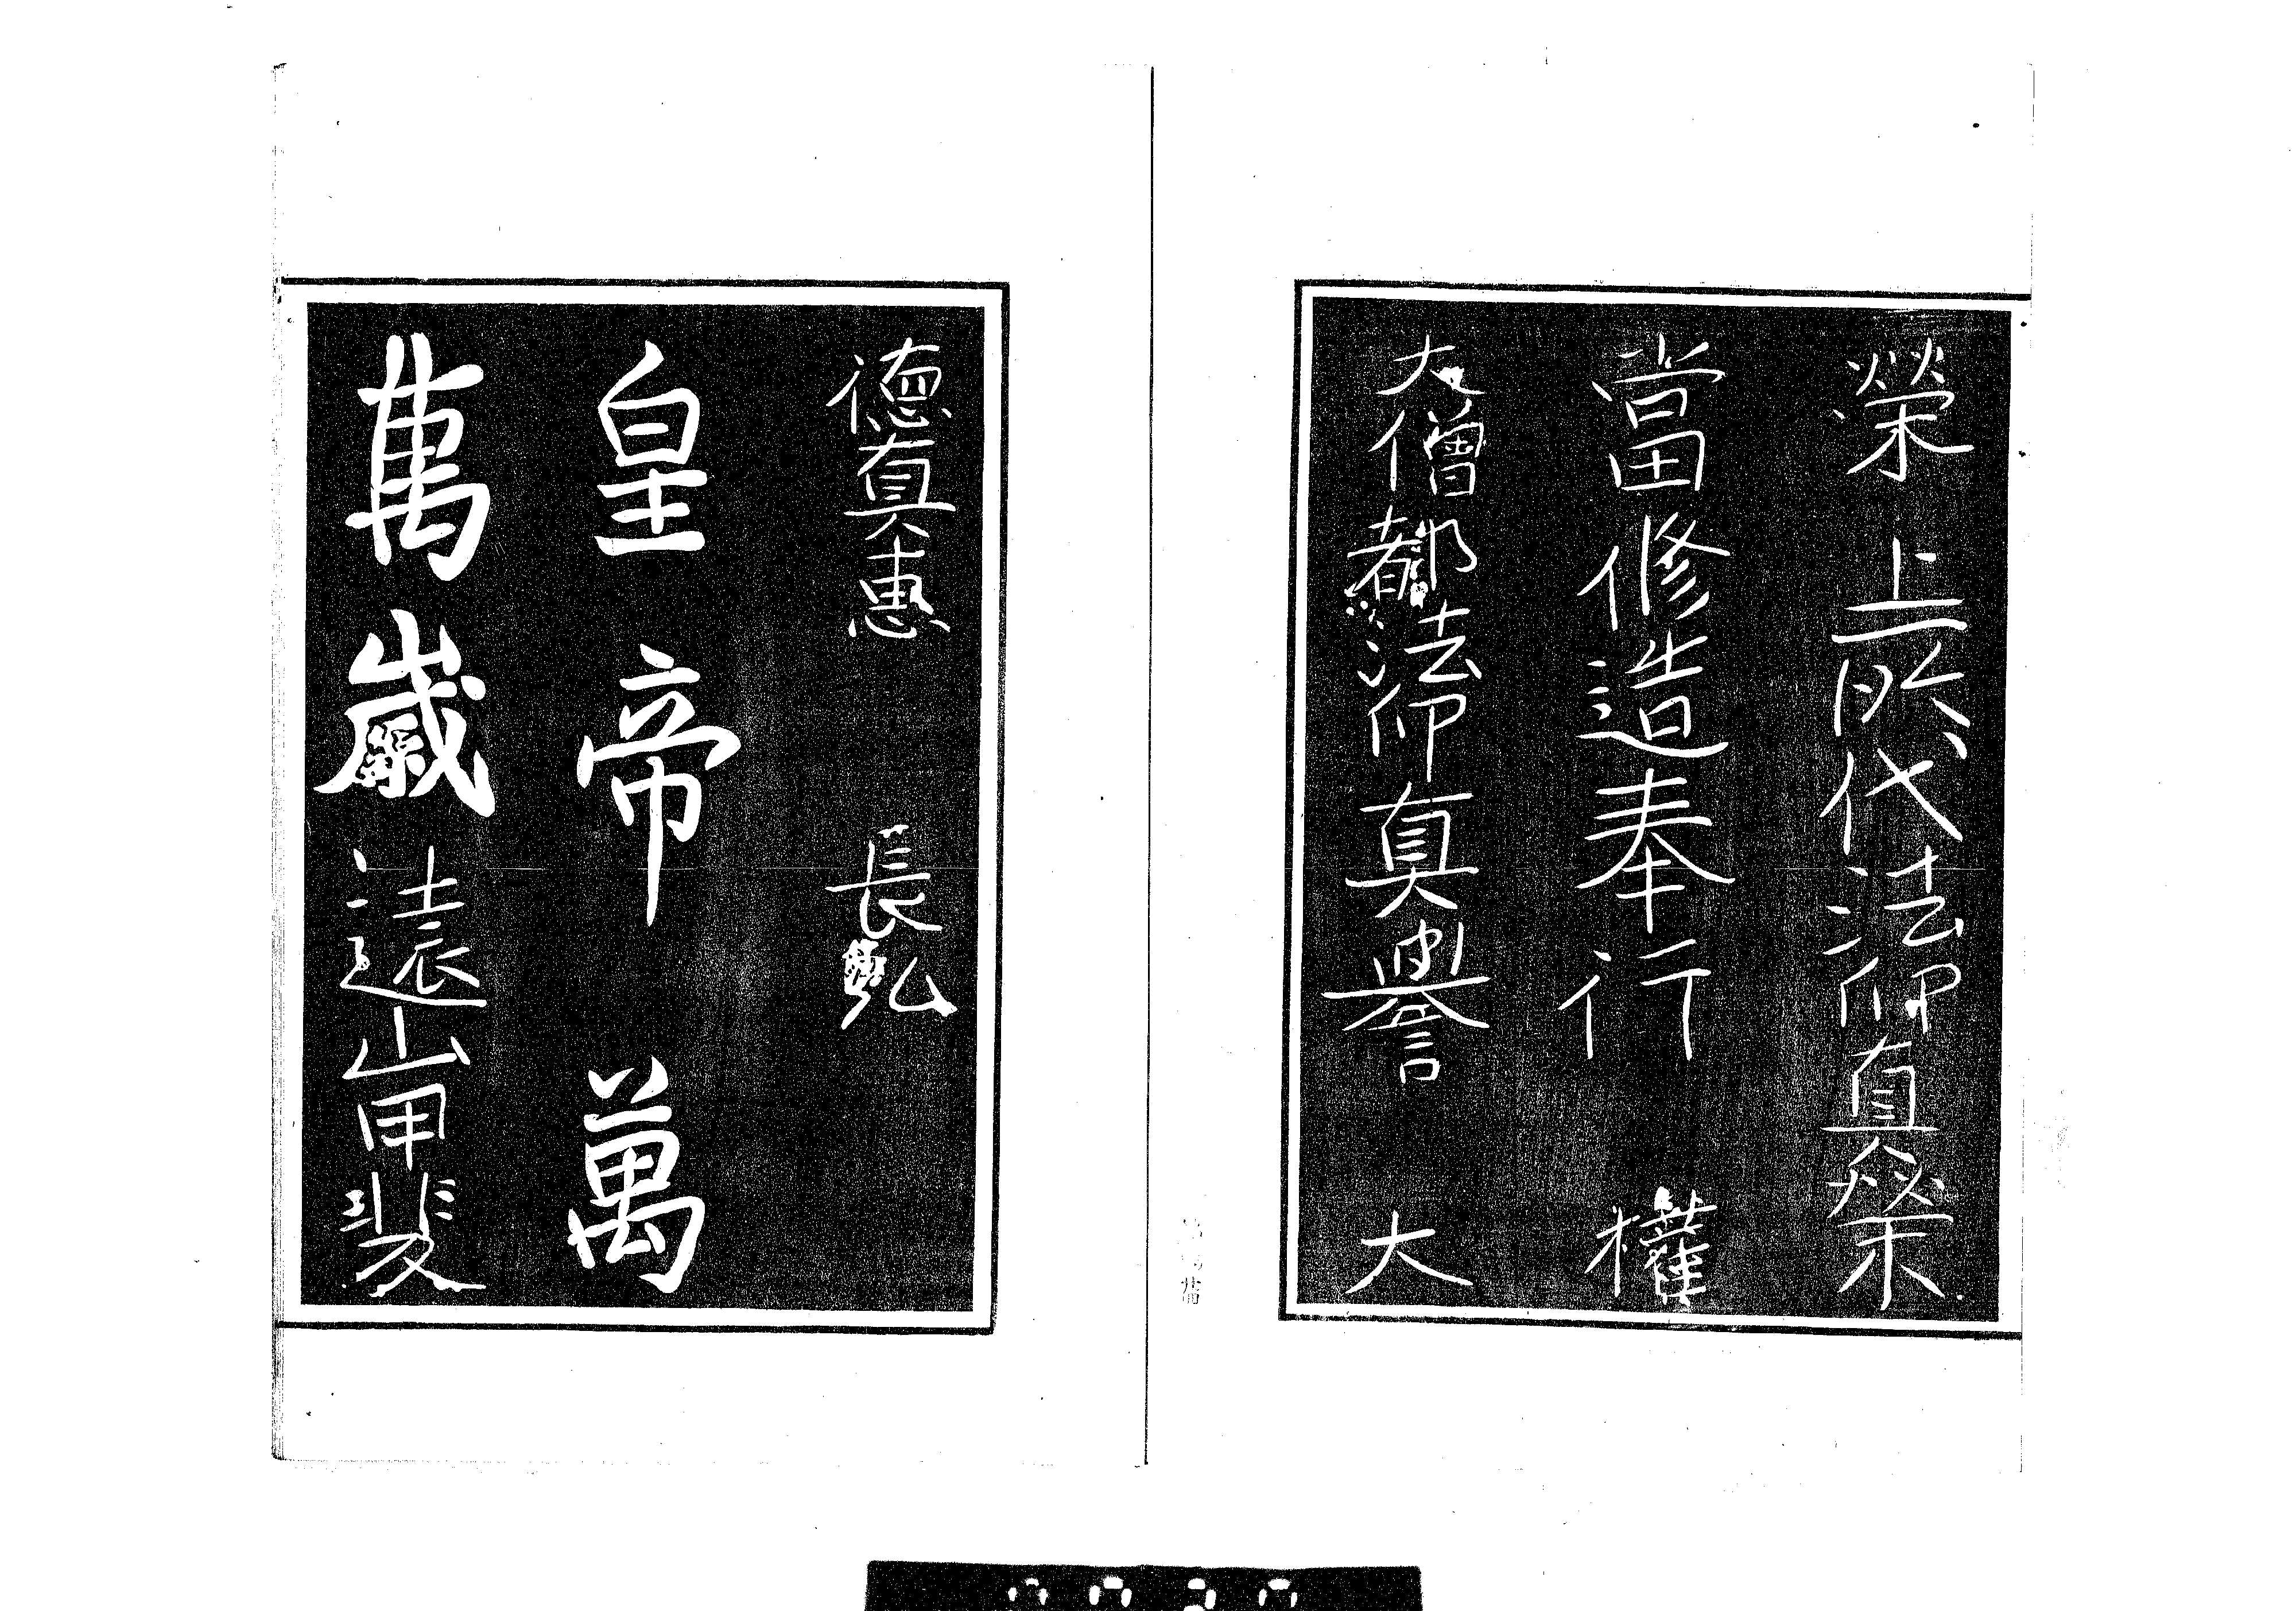 榮上於代法印真桑
當修造奉行 權
大僧都法印真譽 大
德真惠 長弘
皇帝萬
萬歲遠山甲斐